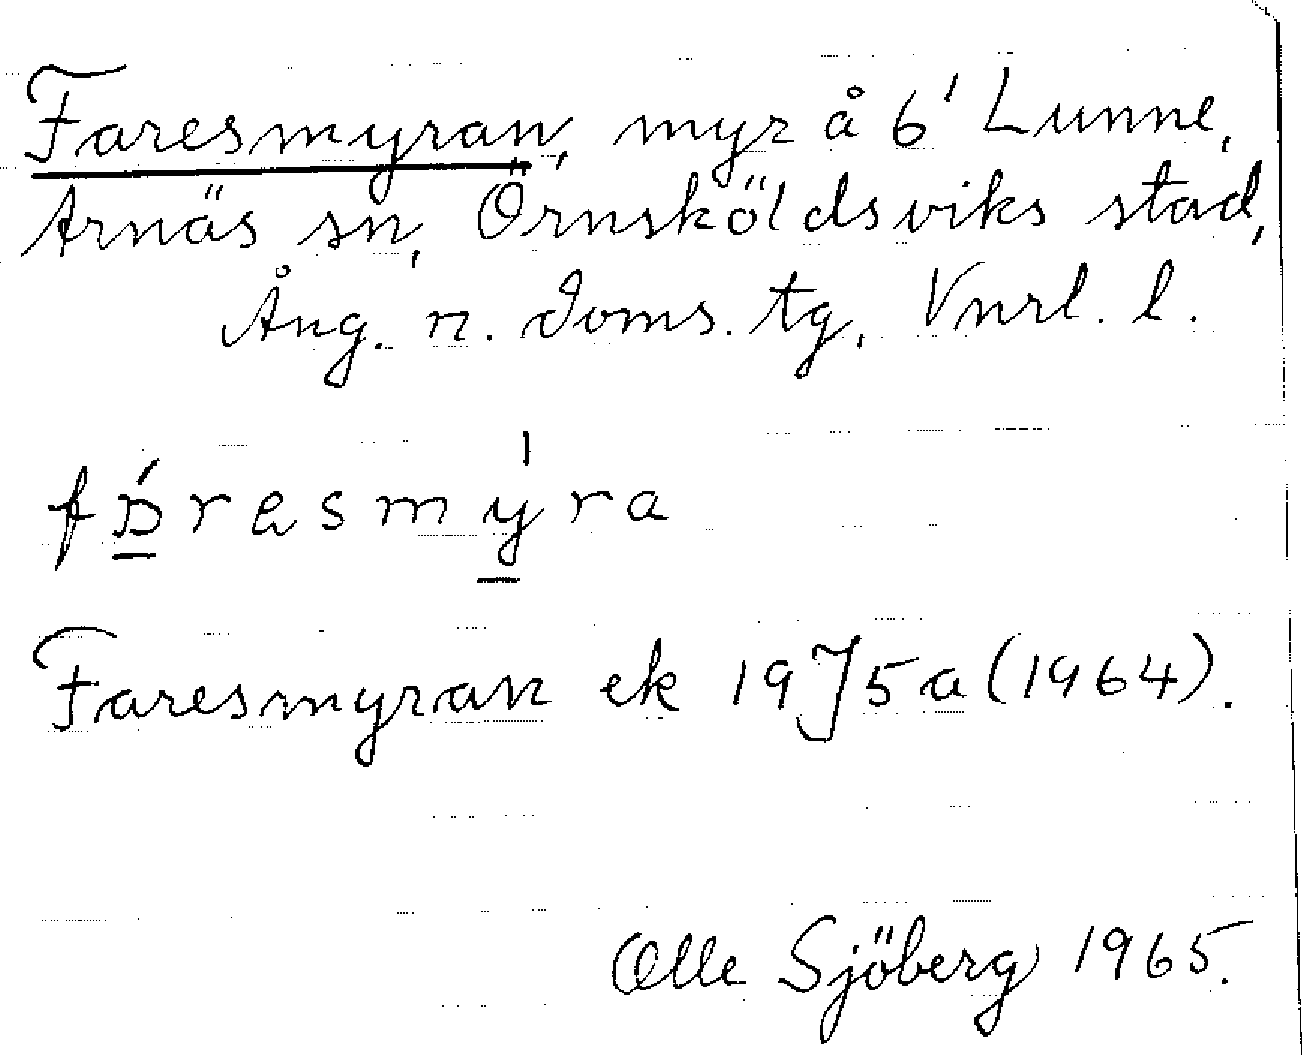 Faresmyran, myr å 6' Lunne,
Arnäs sn, Örnsköldsviks stad,
Ång. n. doms. tg, Vnrl. l.
Faresmyran ek 19J5a (1964).
Olle Sjöberg 1965.